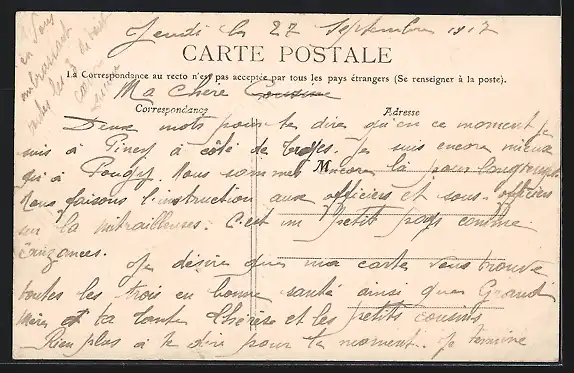 Jeudi le 27 Septembre 1917
CARTE POSTALE
La Correspondance au recto n'est pas acceptée par tous les pays étrangers (Se renseigner à la poste).
Ma chère Cousine
Correspondance
Adresse
Deux mots pour te dire qu'en ce moment je
suis à Piney à côté de Troyes. Je suis encore mieux
qu'à Pougy. Nous sommes encore là pour longtemps
M
Nous faisons l'instruction aux officiers et sous-officiers
sur la mitrailleuse. C'est un petit pays comme
Je désire que ma carte vous trouve
toutes les trois en bonne santé ainsi que Grand
Mère et ta tante Thérèse et les petits cousins
Rien plus à te dire pour le moment. Je termine
en vous
embrassant
toutes les 3